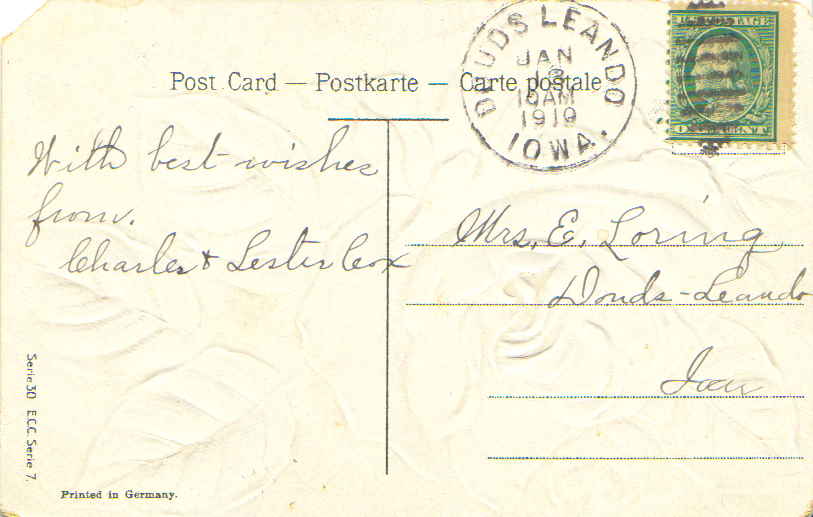 Post Card — Postkarte — Carte postale
DOUDS LEANDO
JAN
18
10AM
1910
IOWA.
With best wishes
from.
Charles & Lester Cox
Mrs. E. Loring
Douds-Leando
Iow
Serie 30 E.C.C. Serie 7.
Printed in Germany.